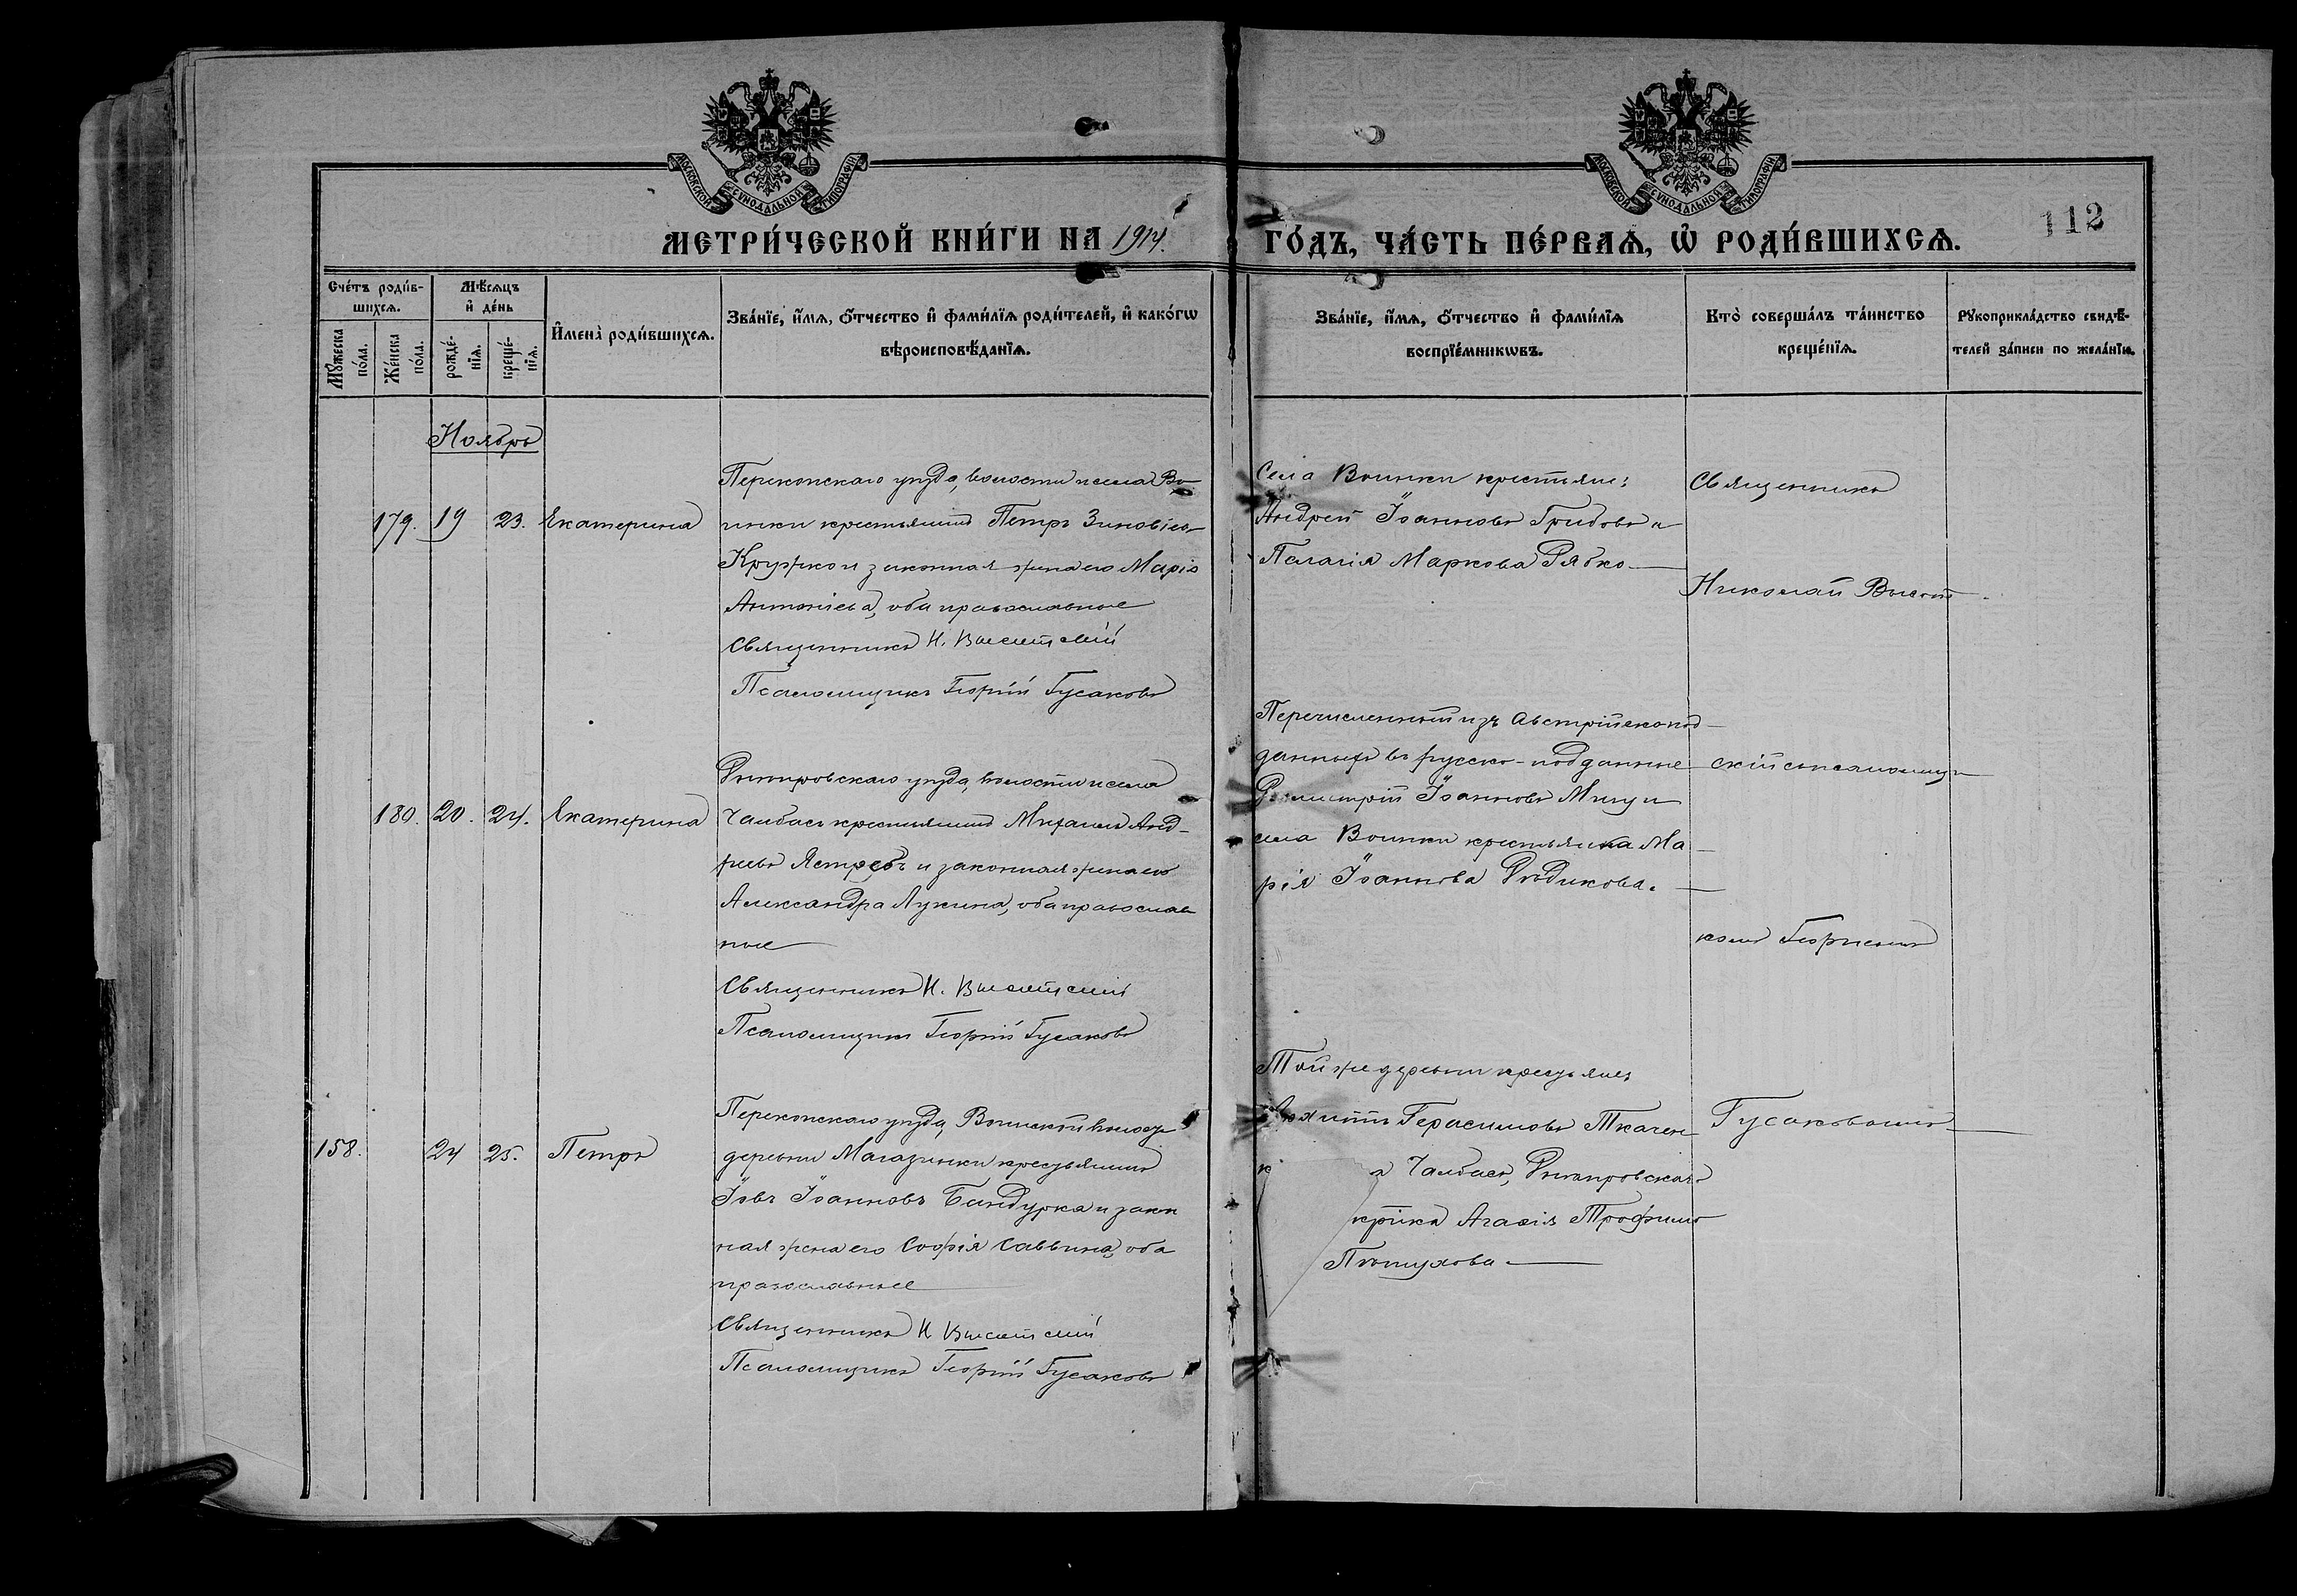 МОСКОВСКОЙ СѴНОДАЛЬНОЙ ТИПОГРАФІИ
МОСКОВСКОЙ СѴНОДАЛЬНОЙ ТИПОГРАФІИ
МЕТРИ́ЧЕСКОЙ КНИ́ГИ НА 1914.
ГО́ДЪ, ЧА́СТЬ ПЕ́РВАѦ, Ѡ҆ РОДИ́ВШИХСѦ.
112
Сче́тъ роди́в-
шихсѧ.
Мꙋжеска по́ла.
Же́нска по́ла.
Мѣ́сѧцъ
и҆ де́нь
рожде́-
нїѧ.
креще́-
нїѧ.
И҆мена̀ роди́вшихсѧ.
Зва́нїе, и҆́мѧ, ѻ҆́тчество и҆ фами́лїѧ роди́телей, и҆ како́гѡ
вѣроисповѣ́данїѧ.
Зва́нїе, и҆́мѧ, ѻ҆́тчество и҆ фами́лїѧ
воспрїе́мникѡвъ.
Кто̀ соверша́лъ та́инство
креще́нїѧ.
Рꙋкоприкла́дство свидѣ́-
телей за́писи по жела́нїю.
Ноябрь
179. 19 23. Екатерина
Перекопскаго уѣзда, волости и села Во-
инки крестьянинъ Петръ Зиновіев
Кружко и законная жена его Марія
Антоніева, оба православные
Священникъ Н. Высотскій
Псаломщикъ Георгій Гусаковъ
Села Воинки крестьяне:
Андрей Іоанновъ Грибовъ и
Пелагія Маркова Рябко
Священникъ
Николай Высот-
180. 20. 24. Екатерина
Днѣпровскаго уѣзда, волости и села
Чалбасъ крестьянинъ Михаилъ Анд-
реевъ Ястребъ и законная жена его
Александра Лукина, оба православ
ные
Священникъ Н. Высотскій
Псаломщикъ Георгій Гусаковъ
Перечисленный изъ Австрійско под-
данныхъ въ русско-подданные
Димитрій Іоанновъ и
села Воинки крестьянка Ма-
рія Іоаннова Дюдикова.
скій съ псаломщи-
комъ Георгіемъ
158. 24 25. Петръ
Перекопскаго уѣзда, Воинской волости
деревни Магазинки крестьянинъ
Іовъ Іоанновъ Бандурка и закон
ная жена его Софія Саввина, оба
православные
Священникъ Н. Высотскій
Псаломщикъ Георгій Гусаковъ
Той же деревни крестьяне
Герасимовъ Ткачен-
к а Чалбасъ, Днѣпровскаго
Агафія Трофимо
Пѣтухова
Гусаковымъ